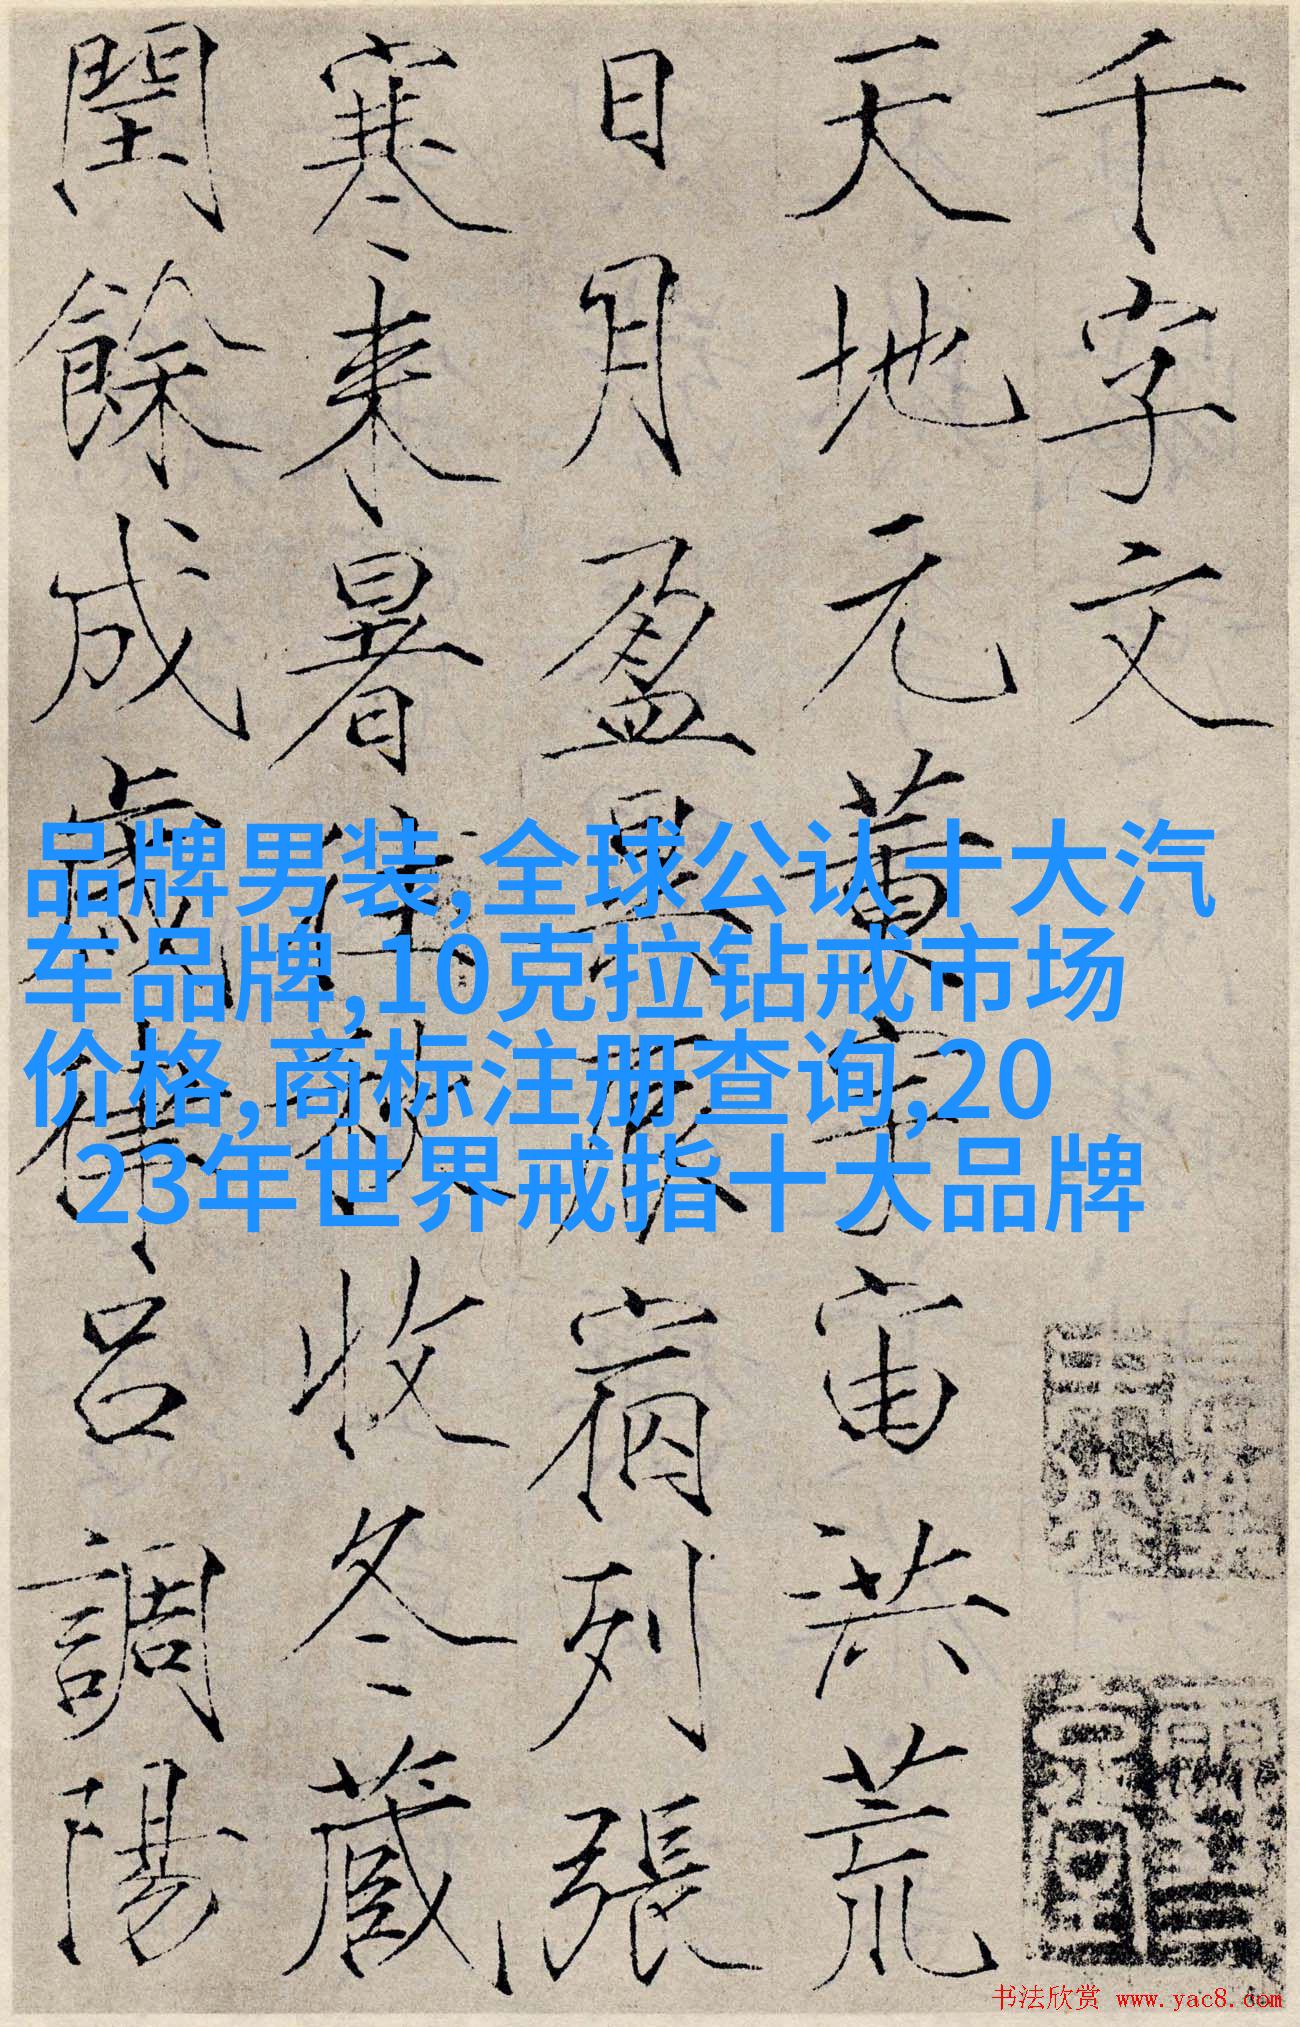 千字文
天地元黃宇宙洪荒
日月盈昃辰宿列張
寒来暑往秋收冬藏
閏餘成歲律呂調陽
品牌男装,全球公认十大汽
车品牌,10克拉钻戒市场
价格,商标注册查询,20
23年世界戒指十大品牌
书法欣赏 www.yac8.com